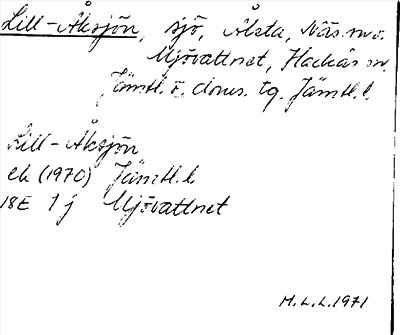 Lill-Åksjön, sjö, Ålsta, Näs sn o.
Mjövattnet, Hackås sn.
Jämtl. ö. doms. tg. Jämtl. l.
Lill-Åksjön
ek (1970) Jämtl. l.
18E 1j Mjövattnet
M.L.L. 1971